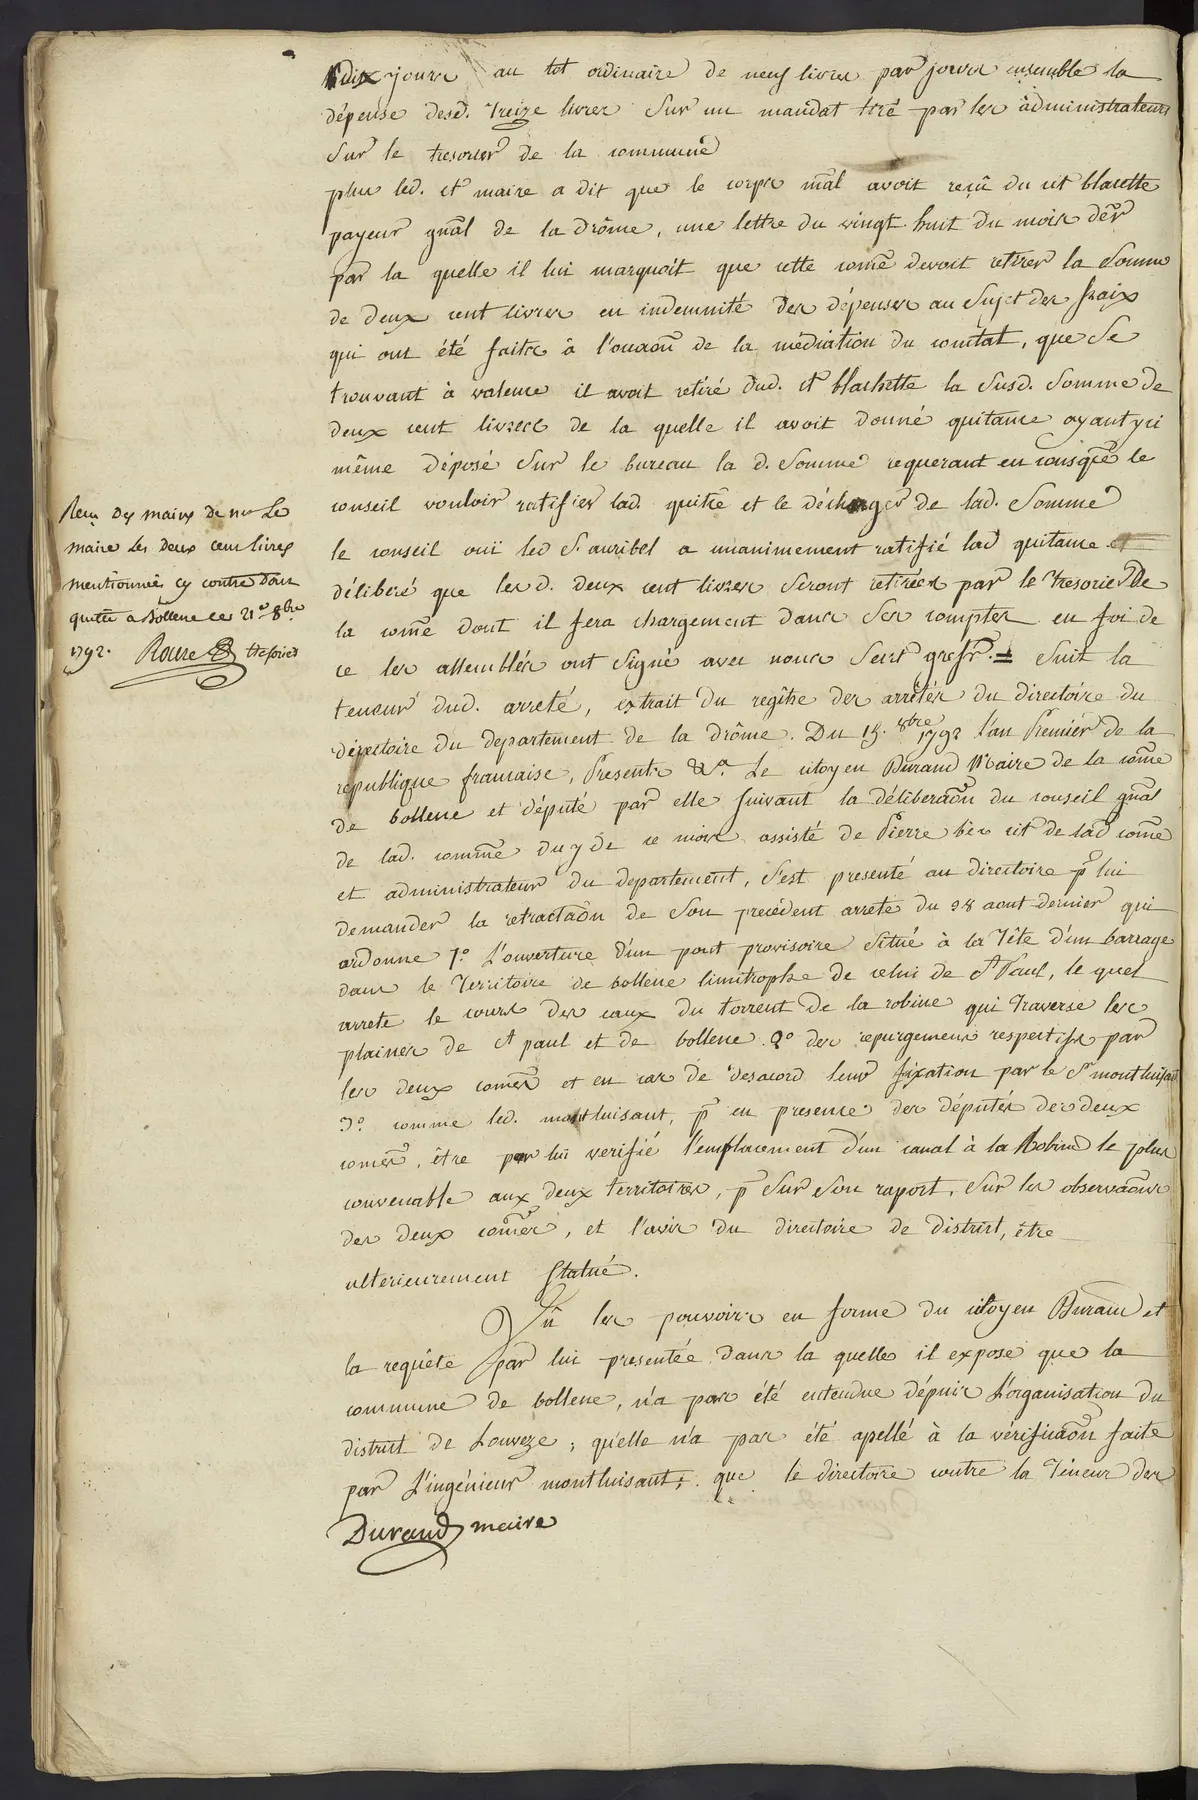 dix jours au tot ordinaire de neuf livres par jours ensemble la
dépense desd. Treize livres sur un mandat tiré par les administrateurs
sur le tresorier de la commune
plus led. ct maire a dit que le corps mãl avoit reçû du cit blacette
payeur gnãl de la drôme, une lettre du vingt huit du mois dẽr
par la quelle il lui marquoit que cette comẽ devoit retirer la somme
de deux cent livres en indemnité des dépenses au sujet des fraix
qui ont été faites à l'ocaõn de la médiation du comtat, que se
trouvant à valence il avoit retiré dud. ct blachette la susd. somme de
deux cent livres de la quelle il avoit donné quitance ayant yci
même déposé sur le bureau la d. somme requerant en consq̃ce le
conseil vouloir ratifier lad. quitce et le décharger de lad. somme
le conseil oui led S. auribel a unanimement ratifié lad quitance et
délibéré que lesd. deux cent livres seront retirées par le Tresorier de
la comẽ dont il fera chargement dans ses comptes en foi de
ce les assemblés ont signé avec nous secrt greffr. = suit la
teneur dud. arreté, extrait du regître des arrêtés du directoire du
directoire du departement de la drôme. Du 15. 8bre 1792 l'an Premier de la
republique francaise, Presents &a. Le citoyen Durand Maire de la comẽ
de bollene et député par elle suivant la déliberaõn du conseil gnãl
de lad. commẽ du 7 de ce mois assisté de Pierre bès cit de lad comẽ
et administrateur du departement, s'est presenté au directoire p̃ lui
demander la retractaõn de son precédent arreté du 28 aout dernier qui
ordonne 1.º L'ouverture d'un pont provisoire situé à la Tête d'un barrage
dans le Territoire de bollene limitrophe de celui de St Paul, le quel
arrete le cours des eaux du torrent de la robine qui Traverse les
plaines de St paul et de bollene. 2º des repurgemens respectifs par
les deux comẽs et en cas de desacord leur fixation par le Sr montluisant
3.º comme led. montluisant, p̃ en presence des députés des deux
comẽs, être par lui verifié l'emplacement d'un canal à la Robine le plus
convenable aux deux territoires, p̃ sur son raport, sur les observaõns
des deux comẽs, et l'avis du directoire de district, être
ulterieurement statué.
Vû les pouvoirs en forme du citoyen Durand et
la requête par lui presentée dans la quelle il expose que la
commune de bollene, n'a pas été entendue dépuis L'organisation du
district de Louveze ; qu'elle n'a pas été apellé à la vérificaõn faite
par L'ingénieur montluisant ; que le directoire contre la Teneur des
Durand maire
Reçu des mains de nre Le
maire les deux cent livres
mentionnées cy contre dont
quitte a Bollene ce 21e 8bre
1792. Roure tresorier